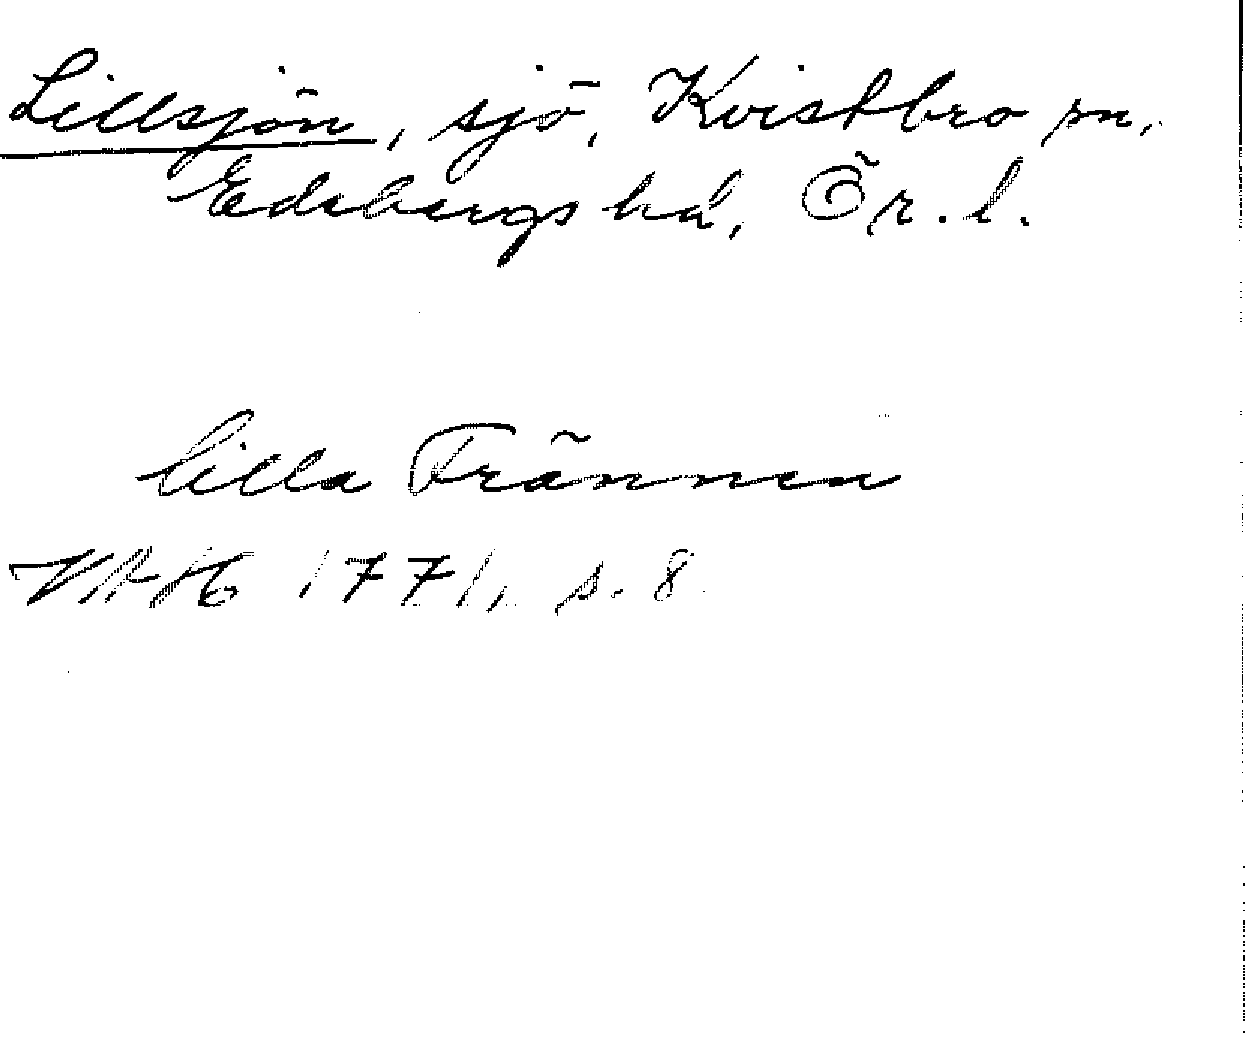 Lillsjön, sjö, Kvistbro sn,
Edsbergs hd, Ör. l.
lilla Trännen
VAH 1771, s. 8.